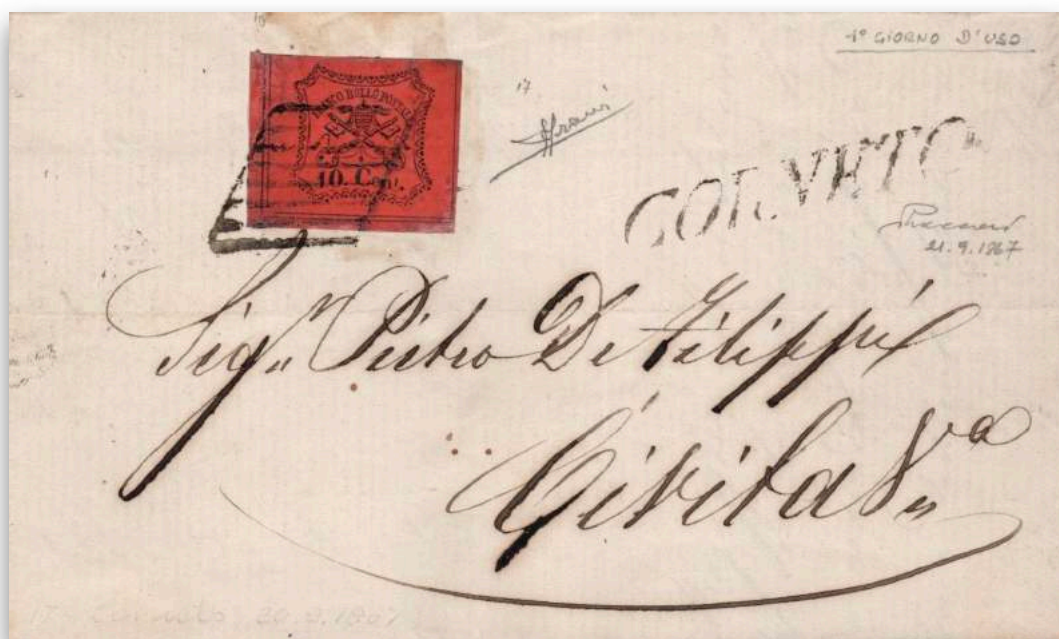 1° GIORNO D'USO
FRANCO BOLLO POSTALE
10. Cent.
17
CORNETO
21.9.1867
Sig.r Pietro De Filippi
CivitaV.a
17 - Corneto 20.9.1867